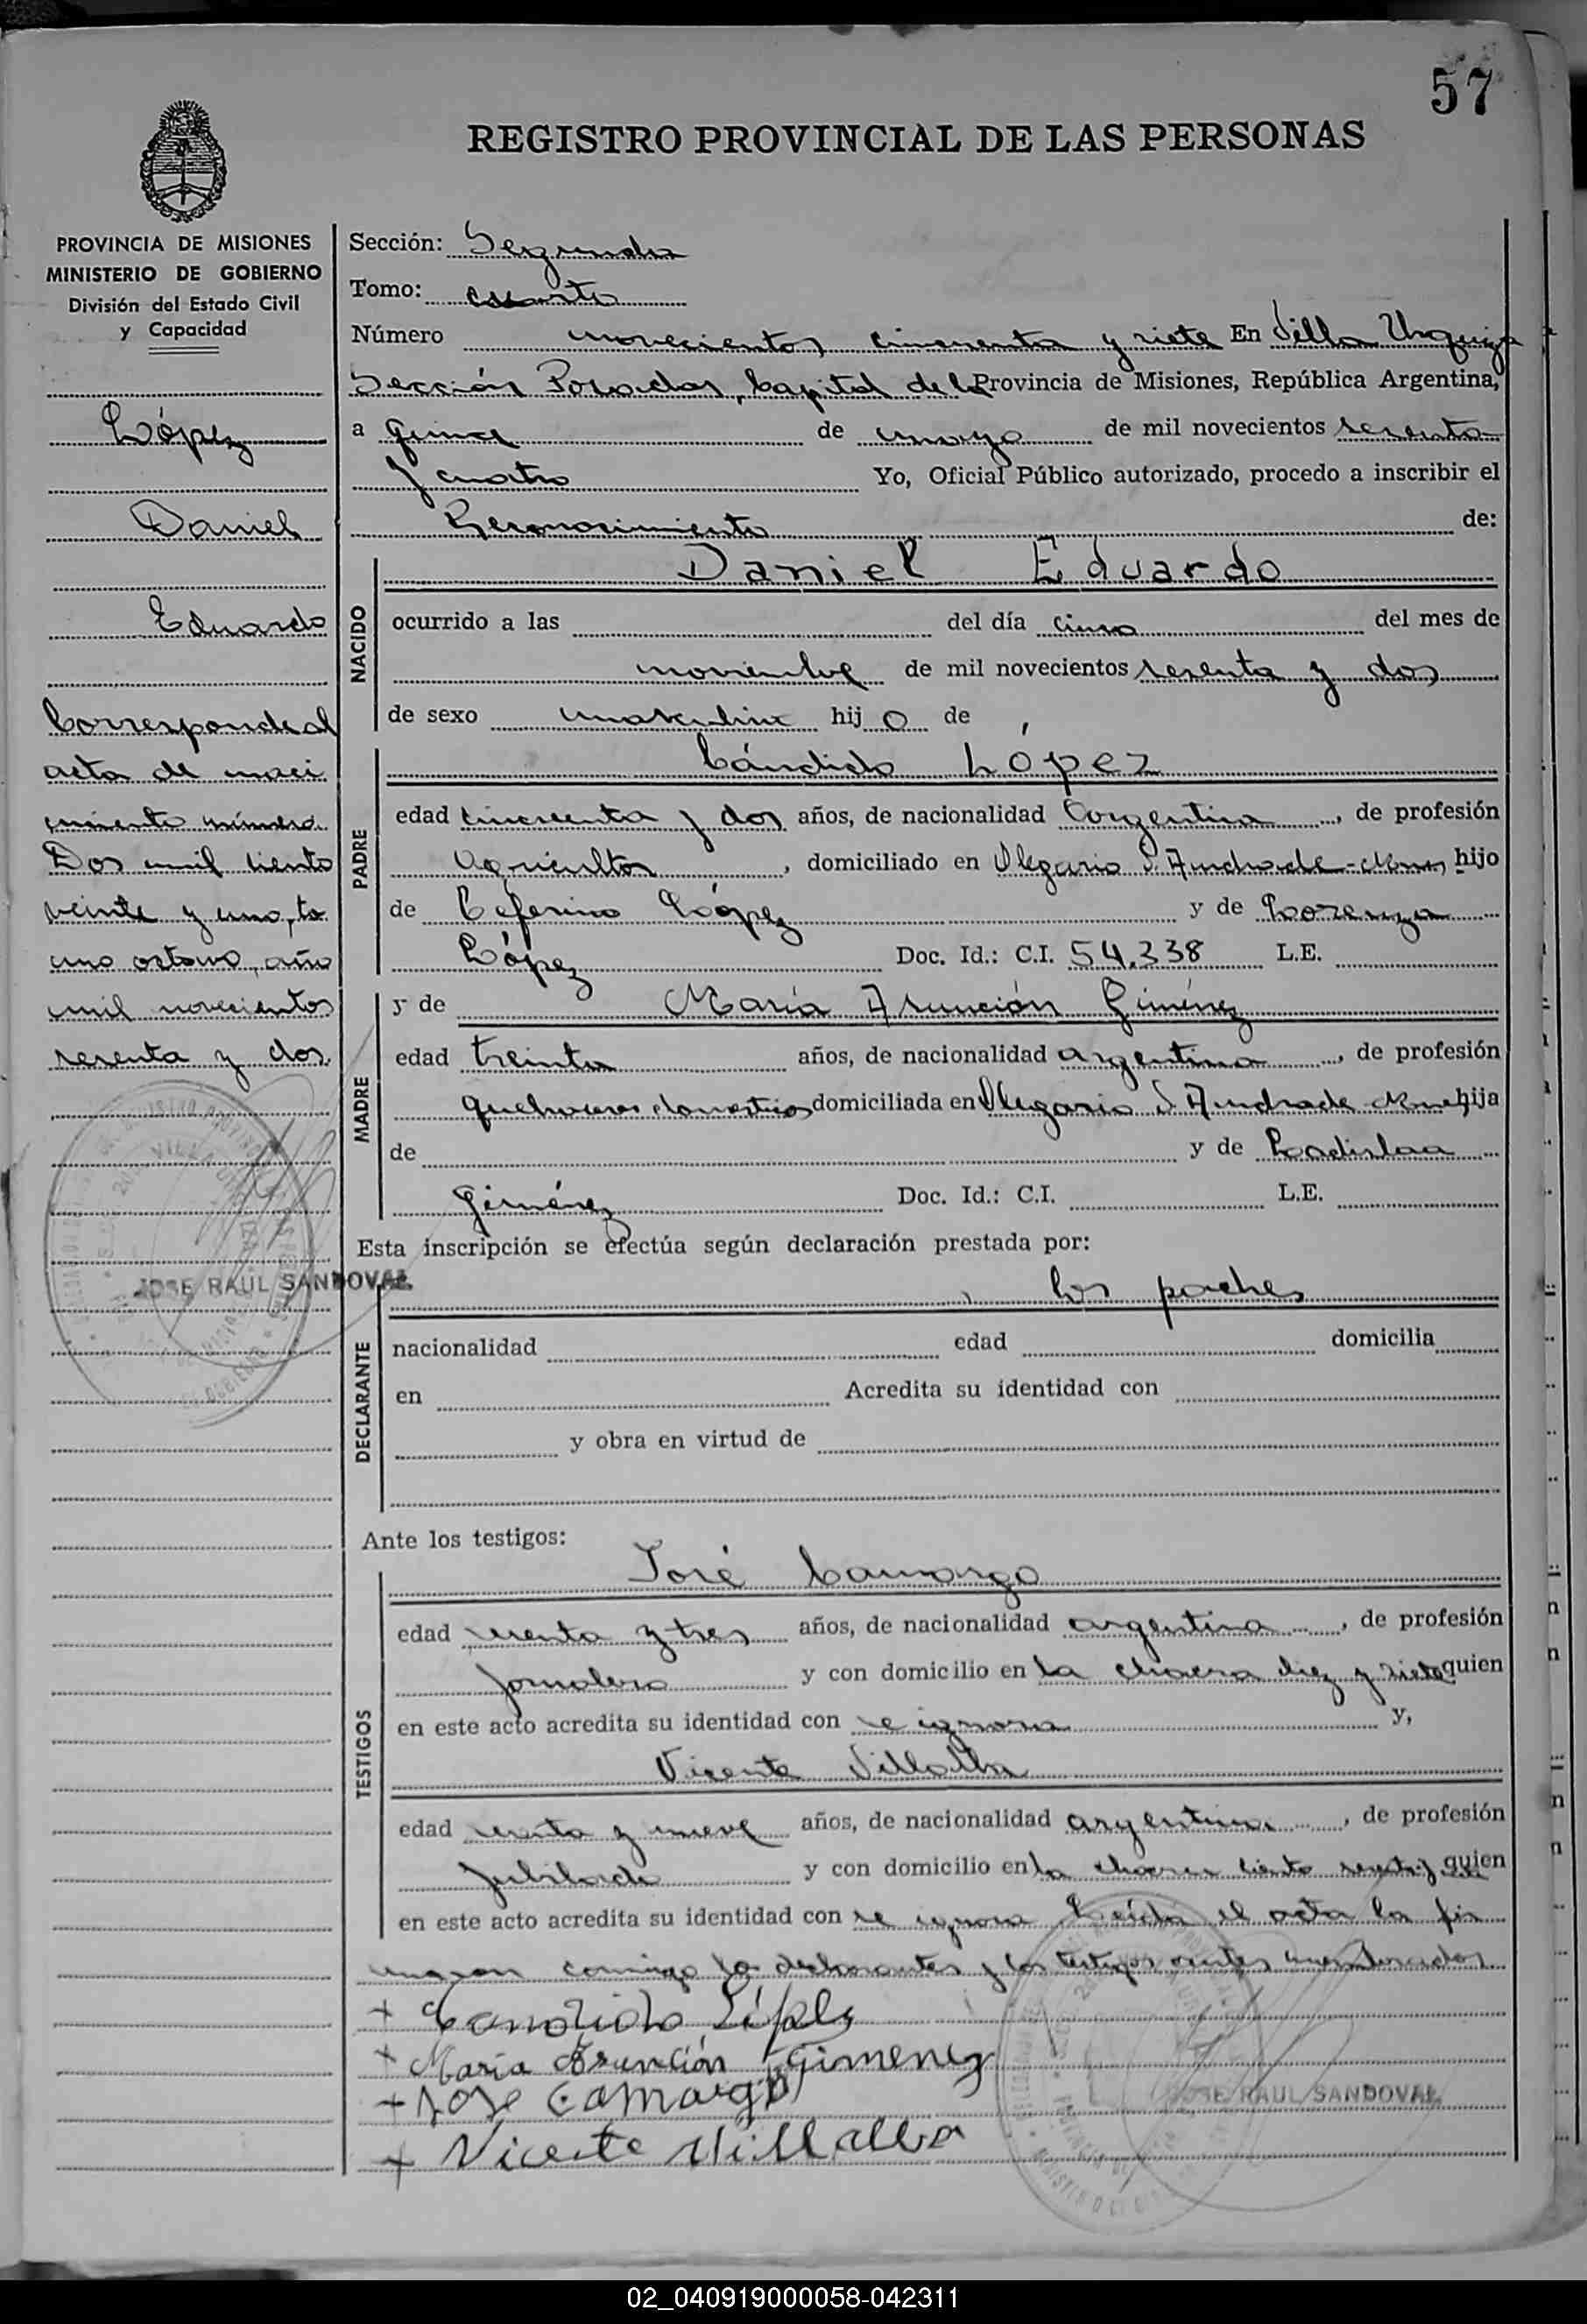 57
REGISTRO PROVINCIAL DE LAS PERSONAS
PROVINCIA DE MISIONES
MINISTERIO DE GOBIERNO
División del Estado Civil
y Capacidad
López
Daniel
Eduardo
Corresponde al
acta de naci
miento número
Dos mil ciento
veinte y uno, to
mo octavo, año
mil novecientos
sesenta y dos.
JOSE RAUL SANDOVAL
Sección: Segunda
Tomo: cuarto
Número novecientos cincuenta y siete En Villa Urquiza
Sección Posadas, Capital de la Provincia de Misiones, República Argentina,
a quince de mayo de mil novecientos sesenta
y cuatro Yo, Oficial Público autorizado, procedo a inscribir el
Reconocimiento de:
NACIDO
Daniel Eduardo
ocurrido a las del día cinco del mes de
noviembre de mil novecientos sesenta y dos
de sexo masculino hijo de
PADRE
Cándido López
edad cincuenta y dos años, de nacionalidad Argentina, de profesión
Agricultor, domiciliado en Olegario V. Andrade - Mnes, hijo
de Ceferino López y de Lorenza
López Doc. Id.: C.I. 54.338 L.E.
MADRE
y de María Asunción Giménez
edad treinta años, de nacionalidad argentina, de profesión
quehaceres domésticos domiciliada en Olegario V Andrade Mnes hija
de y de Ladislaa
Giménez Doc. Id.: C.I. L.E.
Esta inscripción se efectúa según declaración prestada por:
DECLARANTE
los padres
nacionalidad edad domicilia
en Acredita su identidad con
y obra en virtud de
Ante los testigos:
TESTIGOS
José Camargo
edad y tres años, de nacionalidad argentina, de profesión
jornalero y con domicilio en la chacra diez y siete quien
en este acto acredita su identidad con se ignora y,
Vicente Villalba
edad y nueve años, de nacionalidad argentina, de profesión
jubilado y con domicilio en la chacra ciento quien
en este acto acredita su identidad con se ignora Leída el acta la fir
maron conmigo los declarantes y los testigos antes mencionados
+ Candido López
+ María Asunción Gimenez
+ Jose Camargo
+ Vicente Villalba
JOSE RAUL SANDOVAL
02_040919000058-042311